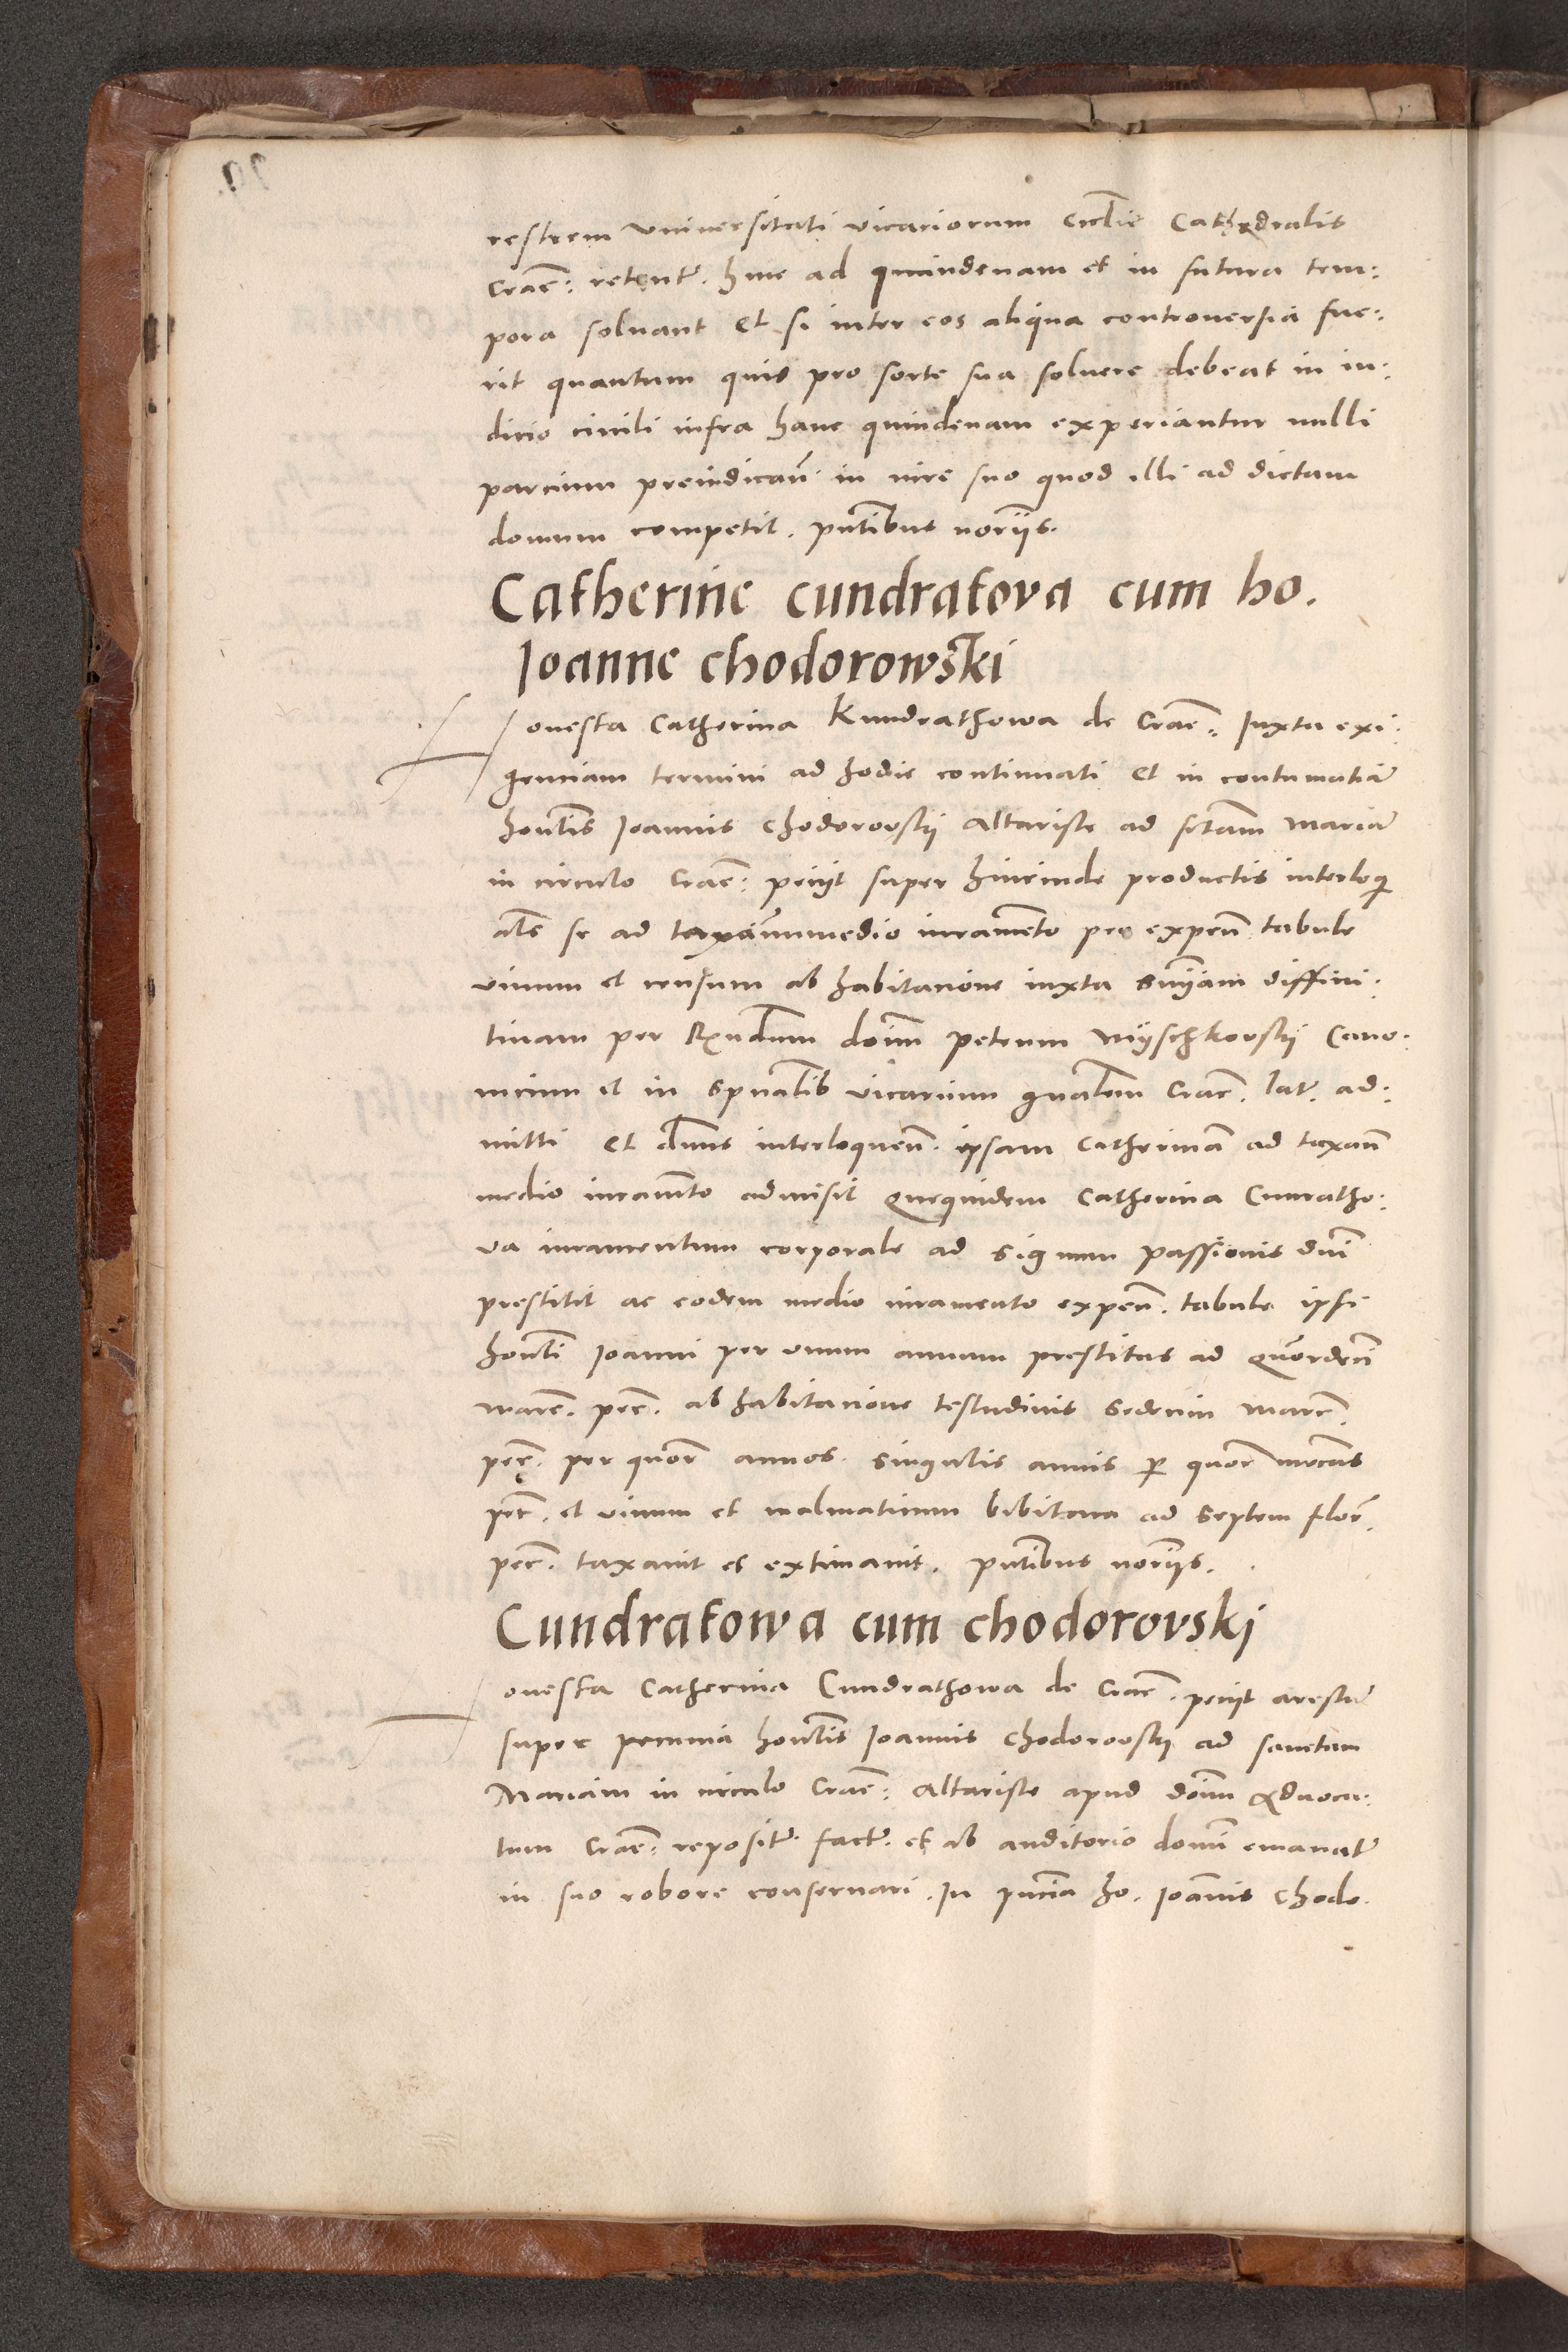 restrem Universitati vicariorum Ecclie Cathedralis
Crac: retentr. hinc ad quindenam et in futura tem:
pora solvant Et si inter eos aliqua controversia fue:
rit quantum quis pro sorte sua solvere debeat in iu:
dicio civili infra hanc quindenam experiantur nulli
parcium preiudicann. in iure suo quod illi ad dictam
domum competit. pntibus noriis.
Catherine cundratova cum ho.
Ioanne chodorowski
Honesta Catherina Kundrathowa de Crac: Iuxta exi:
genciam termini ad hodie continuati et in contumatia
honblis Ioannis Chodorovskÿ Altariste ad sctam Maria
in circulo Crac: peciit super hincinde productis interloqi
als se ad taxann medio iuramento pro expen tabule
vinum et censum ab habitacione iuxta snÿam diffini:
tivam per Rundum doim Petrum Myschkovskÿ Cano:
nicum et in spualib vicarium gnalem Crac. lat. ad:
mitti Et dnus interloquen. ipsam Catherina ad taxann
medio iuramto admisit Quequidem Catherina Cunratho:
va iuramentum corporale ad signum passionis dni
prestitit ac eodem medio iuramento expen. tabule ipsi
honbli Ioanni per unum annum prestitas ad quordeci
marc. pec. ab habitacione testudinis Sedecim marc.
pec. per quor annos. singulis annis p quor marcas
pec. et vinum et malmaticum bibitum ad septem flor.
pec. taxavit et extimavit. pntibus noriis.
Cundratowa cum chodorovski
Honesta Catherina Cundrathowa de Crac. peciit arestu
super pecunia honblis Ioannis Chodorovskÿ ad sanctam
Mariam in circulo Crac: Altariste apud doim Advoca:
tum Crac: repositr. factr. et ab auditorio domi emanatr
in suo robore conservari. In pncia ho. Ioannis Chodo.